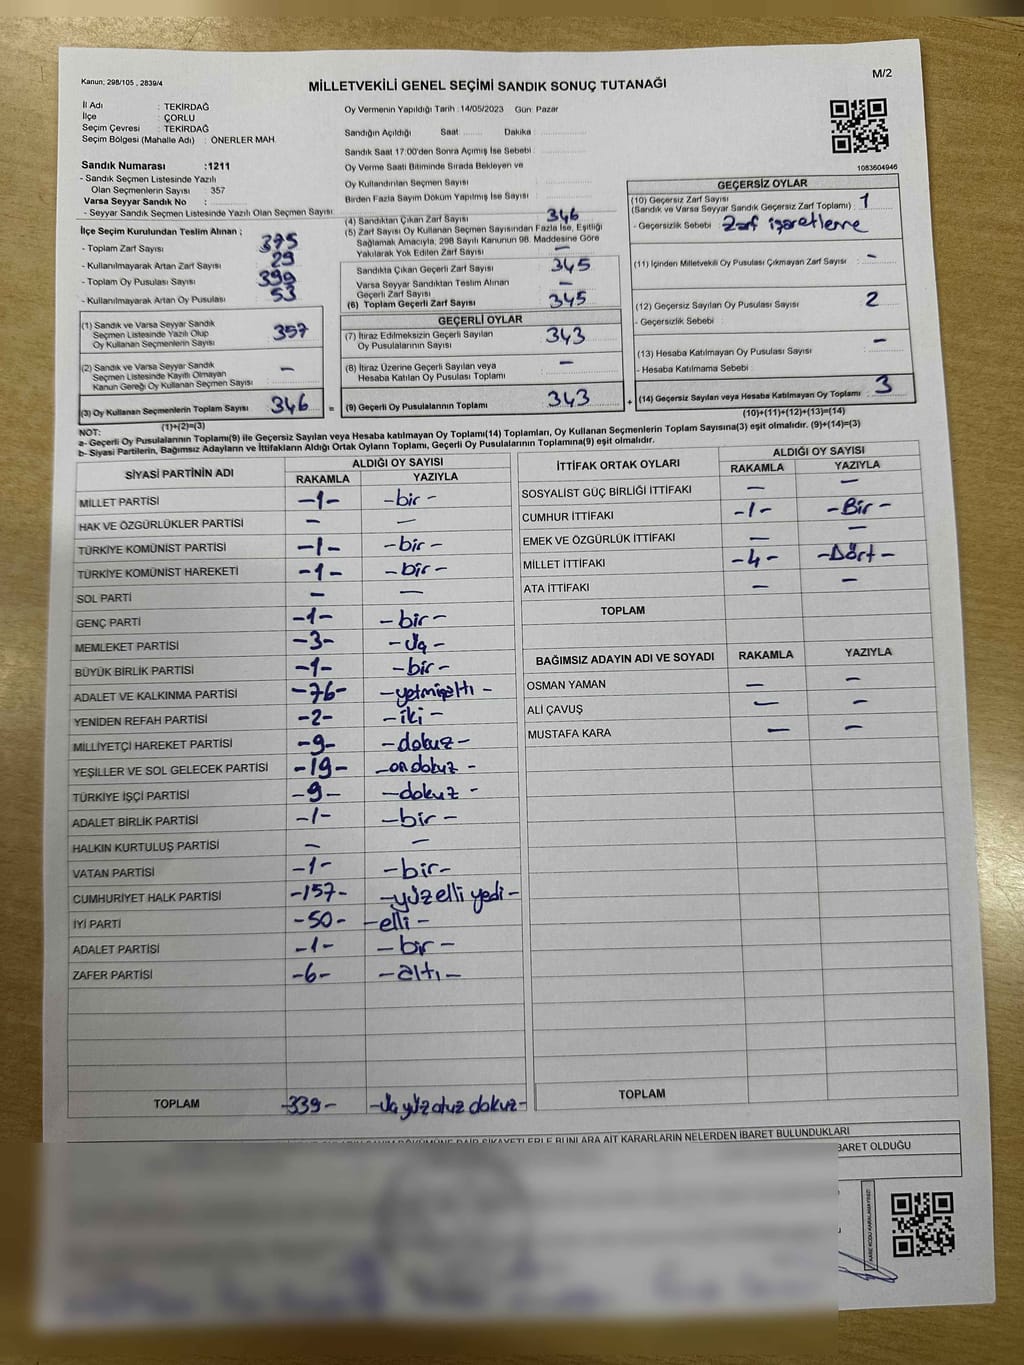 Kanun; 298/105 , 2839/4
MİLLETVEKİLİ GENEL SEÇİMİ SANDIK SONUÇ TUTANAĞI
M/2
İl Adı : TEKİRDAĞ
İlçe : ÇORLU
Seçim Çevresi : TEKİRDAĞ
Seçim Bölgesi (Mahalle Adı) : ÖNERLER MAH
Sandık Numarası :1211
- Sandık Seçmen Listesinde Yazılı
Olan Seçmenlerin Sayısı : 357
Varsa Seyyar Sandık No :
- Seyyar Sandık Seçmen Listesinde Yazılı Olan Seçmen Sayısı
İlçe Seçim Kurulundan Teslim Alınan ;
- Toplam Zarf Sayısı 375
- Kullanılmayarak Artan Zarf Sayısı 29
- Toplam Oy Pusulası Sayısı 399
- Kullanılmayarak Artan Oy Pusulası 53
(1) Sandık ve Varsa Seyyar Sandık
Seçmen Listesinde Yazılı Olup
Oy Kullanan Seçmenlerin Sayısı 357
(2) Sandık ve Varsa Seyyar Sandık
Seçmen Listesinde Kayıtlı Olmayan
Kanun Gereği Oy Kullanan Seçmen Sayısı -
(3) Oy Kullanan Seçmenlerin Toplam Sayısı 346
(1)+(2)=(3)
Oy Vermenin Yapıldığı Tarih : 14/05/2023 Gün: Pazar
Sandığın Açıldığı Saat ........ Dakika :
Sandık Saat 17:00'den Sonra Açımış İse Sebebi :
Oy Verme Saati Bitiminde Sırada Bekleyen ve
Oy Kullandırılan Seçmen Sayısı
Birden Fazla Sayım Döküm Yapılmış İse Sayısı :
(4) Sandıktan Çıkan Zarf Sayısı 346
(5) Zarf Sayısı Oy Kullanan Seçmen Sayısından Fazla İse, Eşitliği
Sağlamak Amacıyla, 298 Sayılı Kanunun 98. Maddesine Göre
Yakılarak Yok Edilen Zarf Sayısı -
Sandıkta Çıkan Geçerli Zarf Sayısı 345
Varsa Seyyar Sandıktan Teslim Alınan
Geçerli Zarf Sayısı -
(6) Toplam Geçerli Zarf Sayısı 345
GEÇERLİ OYLAR
(7) İtiraz Edilmeksizin Geçerli Sayılan
Oy Pusulalarının Sayısı 343
(8) İtiraz Üzerine Geçerli Sayılan veya
Hesaba Katılan Oy Pusulası Toplamı -
= (9) Geçerli Oy Pusulalarının Toplamı 343
1083604946
GEÇERSİZ OYLAR
(10) Geçersiz Zarf Sayısı
(Sandık ve Varsa Seyyar Sandık Geçersiz Zarf Toplamı) : 1
- Geçersizlik Sebebi : Zarf işaretleme
(11) İçinden Milletvekili Oy Pusulası Çıkmayan Zarf Sayısı : -
(12) Geçersiz Sayılan Oy Pusulası Sayısı 2
- Geçersizlik Sebebi :
(13) Hesaba Katılmayan Oy Pusulası Sayısı -
- Hesaba Katılmama Sebebi :
+ (14) Geçersiz Sayılan veya Hesaba Katılmayan Oy Toplamı 3
(10)+(11)+(12)+(13)=(14)
NOT:
a- Geçerli Oy Pusulalarının Toplamı(9) ile Geçersiz Sayılan veya Hesaba katılmayan Oy Toplamı(14) Toplamları, Oy Kullanan Seçmenlerin Toplam Sayısına(3) eşit olmalıdır. (9)+(14)=(3)
b- Siyasi Partilerin, Bağımsız Adayların ve İttifakların Aldığı Ortak Oyların Toplamı, Geçerli Oy Pusulalarının Toplamına(9) eşit olmalıdır.
SİYASİ PARTİNİN ADI ALDIĞI OY SAYISI
RAKAMLA YAZIYLA
MİLLET PARTİSİ -1- -bir-
HAK VE ÖZGÜRLÜKLER PARTİSİ - -
TÜRKİYE KOMÜNİST PARTİSİ -1- -bir-
TÜRKİYE KOMÜNİST HAREKETİ -1- -bir-
SOL PARTİ - -
GENÇ PARTİ -1- -bir-
MEMLEKET PARTİSİ -3- -üç-
BÜYÜK BİRLİK PARTİSİ -1- -bir-
ADALET VE KALKINMA PARTİSİ -76- -yetmişaltı-
YENİDEN REFAH PARTİSİ -2- -iki-
MİLLİYETÇİ HAREKET PARTİSİ -9- -dokuz-
YEŞİLLER VE SOL GELECEK PARTİSİ -19- -on dokuz-
TÜRKİYE İŞÇİ PARTİSİ -9- -dokuz-
ADALET BİRLİK PARTİSİ -1- -bir-
HALKIN KURTULUŞ PARTİSİ - -
VATAN PARTİSİ -1- -bir-
CUMHURİYET HALK PARTİSİ -157- -yüz elli yedi-
İYİ PARTİ -50- -elli-
ADALET PARTİSİ -1- -bir-
ZAFER PARTİSİ -6- -altı-
TOPLAM -339- -üç yüz otuz dokuz-
İTTİFAK ORTAK OYLARI ALDIĞI OY SAYISI
RAKAMLA YAZIYLA
SOSYALİST GÜÇ BİRLİĞİ İTTİFAKI - -
CUMHUR İTTİFAKI -1- -Bir-
EMEK VE ÖZGÜRLÜK İTTİFAKI - -
MİLLET İTTİFAKI -4- -Dört-
ATA İTTİFAKI - -
TOPLAM
BAĞIMSIZ ADAYIN ADI VE SOYADI RAKAMLA YAZIYLA
OSMAN YAMAN - -
ALİ ÇAVUŞ - -
MUSTAFA KARA - -
TOPLAM
SAYIM DÖKÜMÜNE DAİR ŞİKAYETLERLE BUNLARA AİT KARARLARIN NELERDEN İBARET BULUNDUKLARI
BARET OLDUĞU